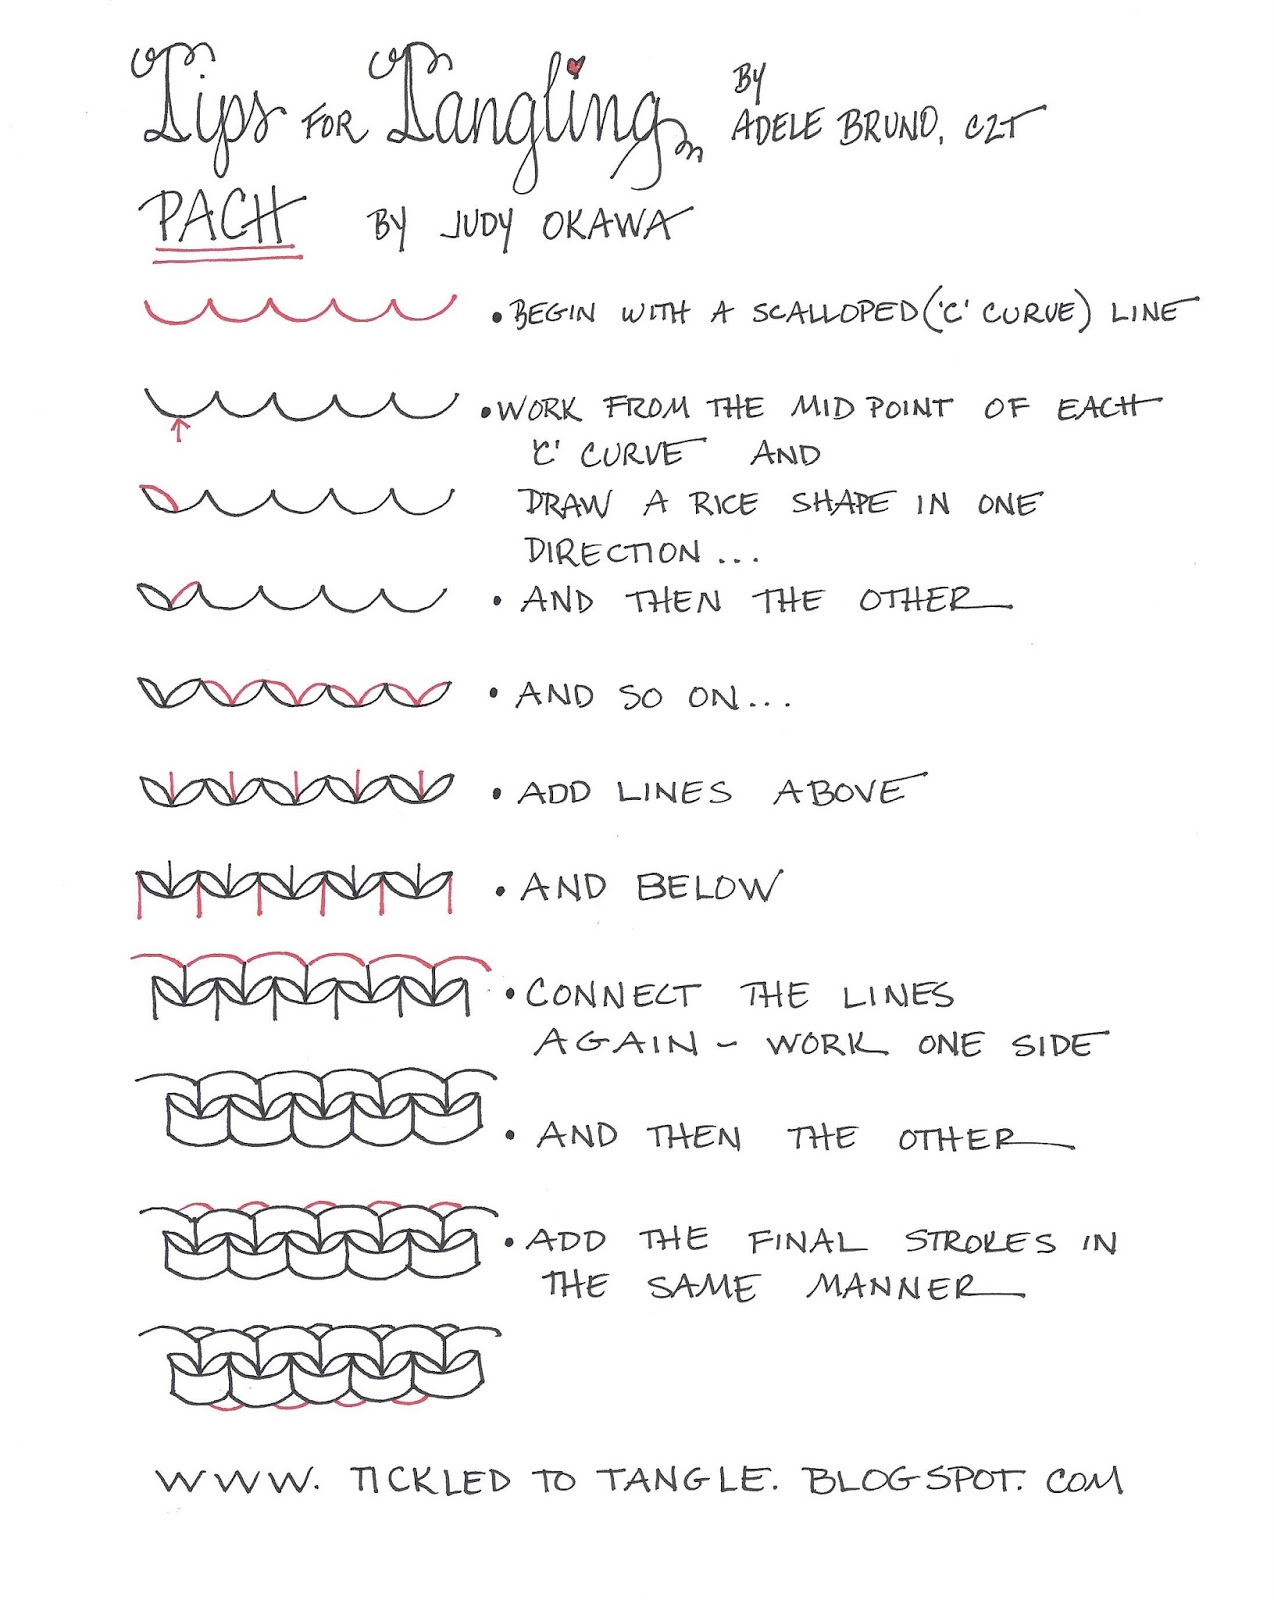 Tips FOR Tangling BY
ADELE BRUNO, CZT
PACH BY JUDY OKAWA
• BEGIN WITH A SCALLOPED ('C' CURVE) LINE
• WORK FROM THE MIDPOINT OF EACH
'C' CURVE AND
DRAW A RICE SHAPE IN ONE
DIRECTION...
• AND THEN THE OTHER
• AND SO ON...
• ADD LINES ABOVE
• AND BELOW
• CONNECT THE LINES
AGAIN - WORK ONE SIDE
• AND THEN THE OTHER
• ADD THE FINAL STROKES IN
THE SAME MANNER
WWW. TICKLED TO TANGLE. BLOGSPOT. COM